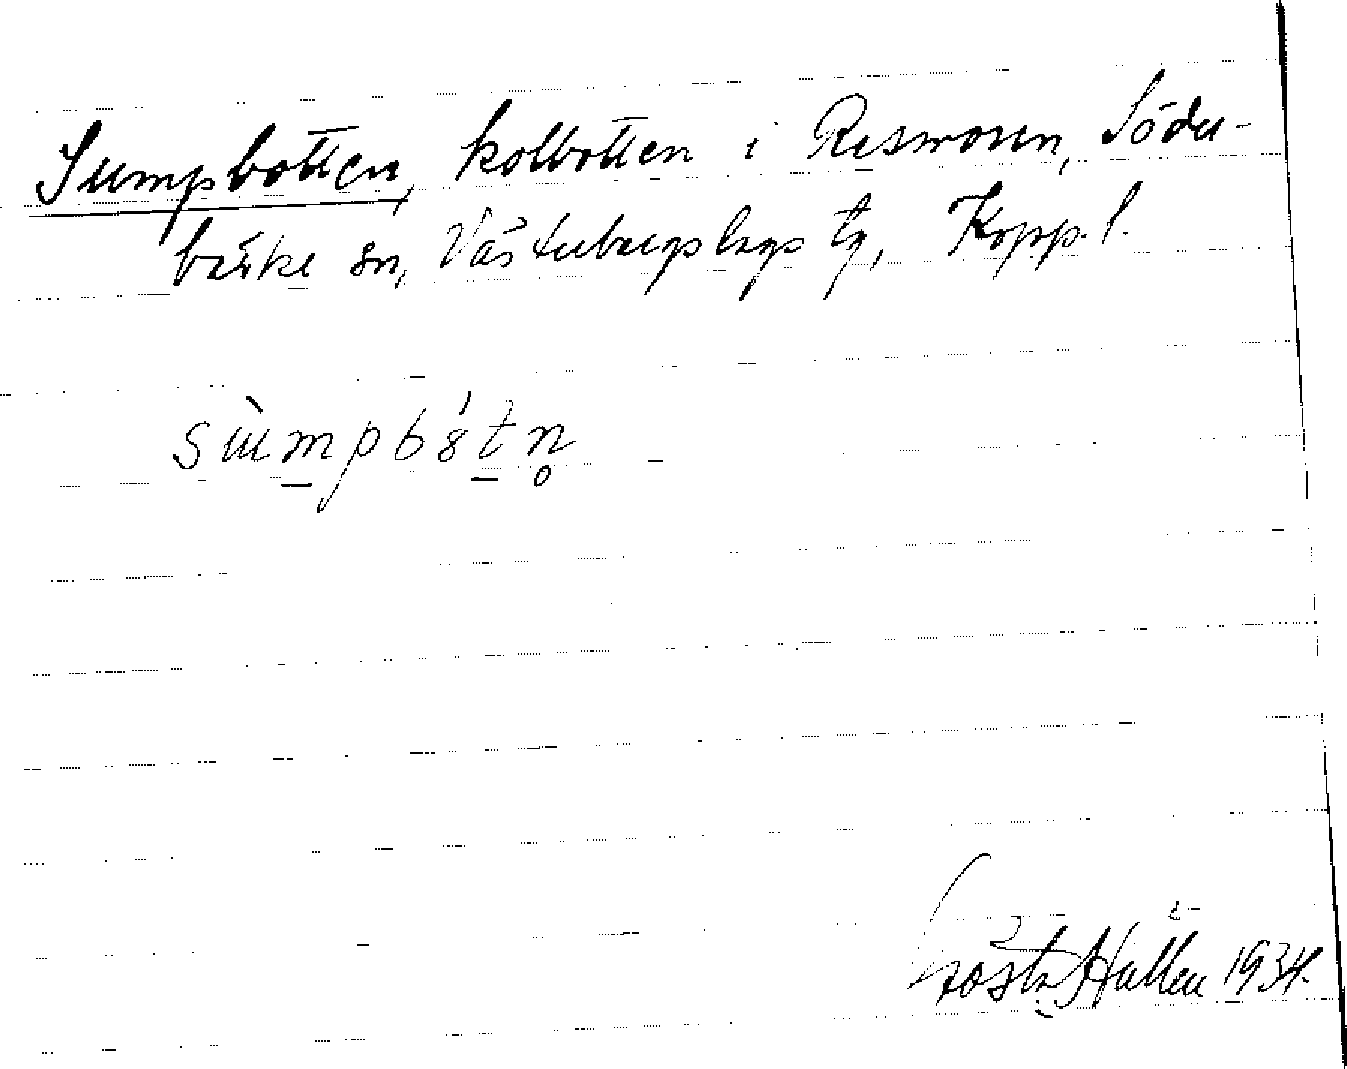 Sumpbotten, kolbotten i Rismossen, Söder-
bärke sn, Västerbergslags tg, Kopp. l.
sùmpb8́tn̥
Gösta Hallén 1934.